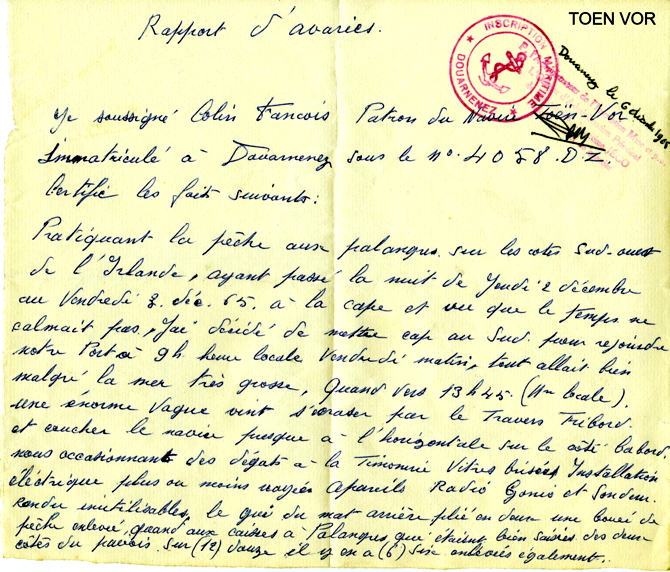 TOEN VOR
Rapport d'avaries.
INSCRIPTION MARITIME
DOUARNENEZ
Douarnenez le 6 décembre 1965
Je soussigné Colin Francois Patron du Navire Toën-Vor
Immatriculé à Douarnenez sous le n° 4058 D.Z.
Certifie les faits suivants:
Pratiquant la pêche aux palangres sur les cotes Sud-ouest
de l'Irlande, ayant passé la nuit de Jeudi 2 décembre
au Vendredi 3. déc. 65. à la cape et vu que le temps ne
calmait pas, J'ai décidé de mettre cap au Sud pour rejoindre
notre Port à 9h. heure locale Vendredi matin, tout allait bien
malgré la mer très grosse, Quand vers 13h45. (Hre locale).
une énorme vague vint s'écraser par le Travers Tribord.
et coucher le navire presque à l'horizontale sur le côté babord.
nous occasionnant des dégats à la Timonerie Vitres brisées Installation
éléctrique plus ou moins noyées Apareils Radio Gonio et Sondeur.
Rendu inutilisables, le gui du mat arrière plié en deux une bouée de
pêche enlevé, quand aux caisses à Palangres, qui étaient bien saisies des deux
côtés du pavois. Sur (12) douze il y en a (6) six enlevées également.